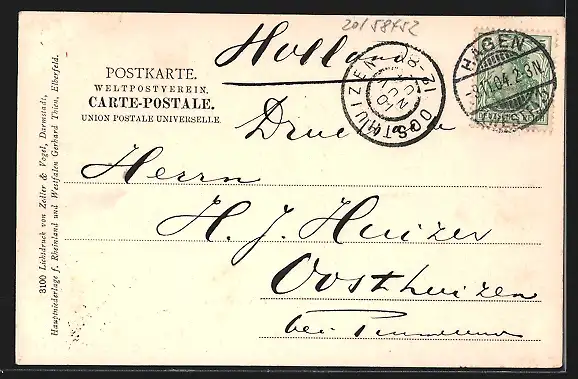 20/58452
Holland
POSTKARTE.
WELTPOSTVEREIN.
CARTE-POSTALE.
UNION POSTALE UNIVERSELLE.
HAGEN
OOSTHUIZEN
Herrn
H. J. Huizer
Oosthuizen
bei
3100 Lichtdruck von Zedler & Vogel, Darmstadt,
Hauptniederlage f. Rheinland und Westfalen Gerhard Thien, Elberfeld.